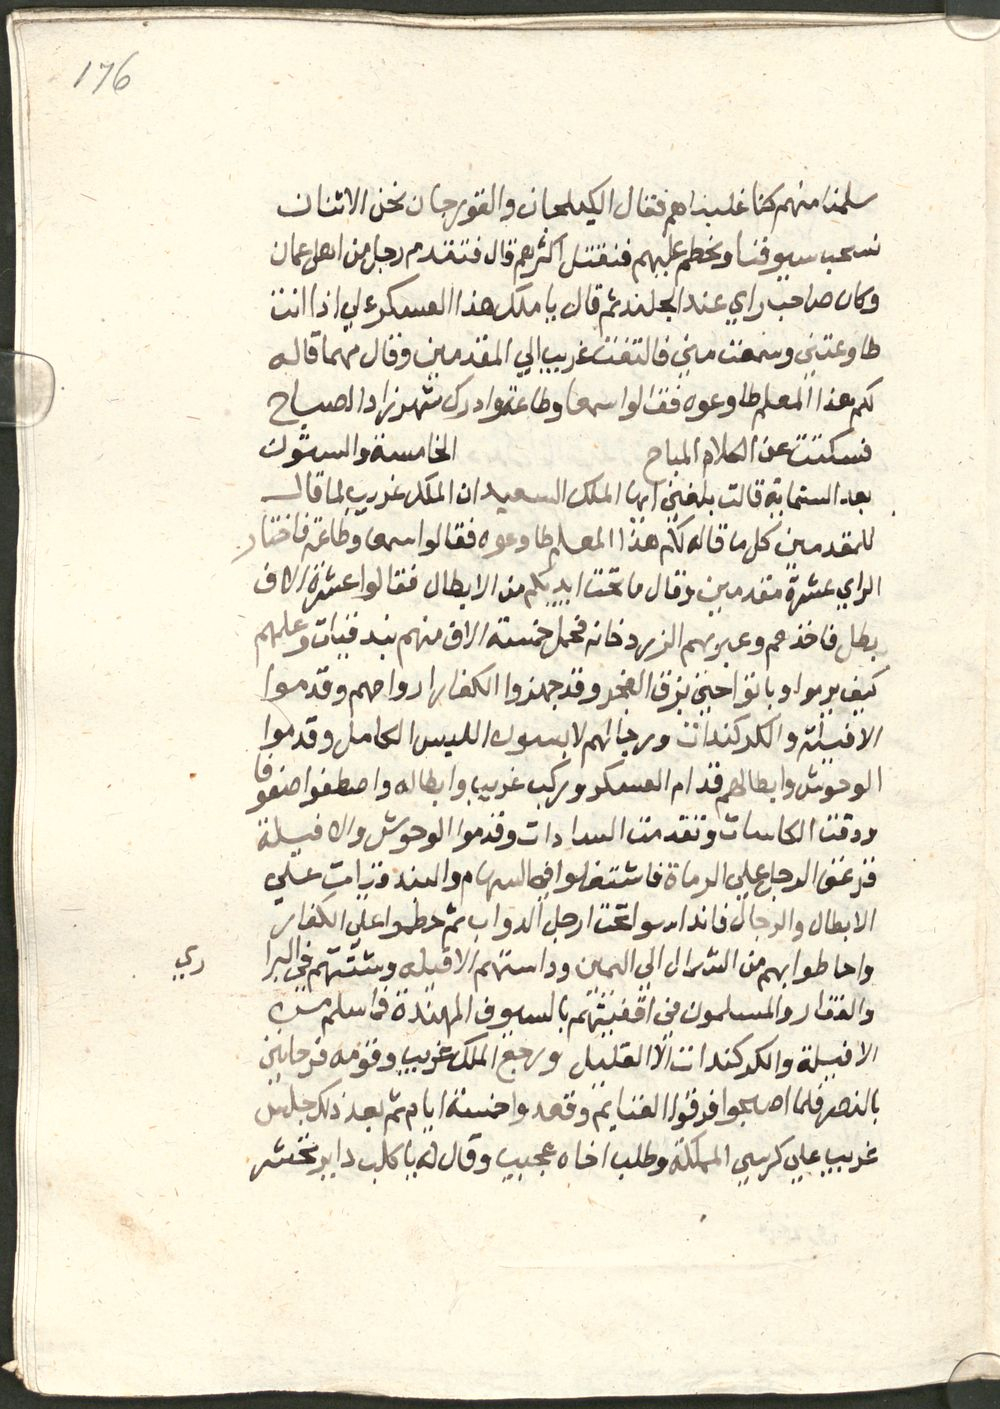 176
سلمنا منهم كنا غلبناهم فقال الكيلجان والقورجان نحن الاثنان
نسحب سيوفنا ونحطم عليهم فنقتل اكثرهم قال فتقدم رجل من اهل عمان
وكان صاحب راي عند الجلند ثم قال يا ملك هذا العسكر علي اذا انت
طاوعتني وسمعت مني فالتفت غريب الي المقدمين وقال مهما قاله
لكم هذا المعلم طاوعوه فقالوا سمعا وطاعة وادرك شهرزاد الصباح
فسكتت عن الكلام المباح الخامسة والستون
بعد الستماية قالت بلغني ايها الملك السعيد ان الملك غريب لما قال
للمقدمين كل ما قاله لكم هذا المعلم طاوعوه فقالوا سمعا وطاعة فاختار
الراي عشرة مقدمين وقال ما تحت ايديكم من الابطال فقالوا عشرة الاف
بطل فاخذهم وعبر بهم الزردخانه فحمل خمسة الاف منهم بندقيات وعلمهم
كيف يرموا وباتوا حين بزق الفجر وقد جهزوا الكفار ارواحهم وقدموا
الافيلة والكركندات ورجالهم لابسون اللبس الكامل وقدموا
الوحوش وابطالهم قدام العسكر وركب غريب وابطاله واصطفوا صفوفا
ودقت الكاسات وتقدمت السادات وقدموا الوحوش والافيلة
فزعق الرجاع علي الرماة فاشتغلوا في السهام والبندقيات علي
الابطال والرجال فانداسوا تحت ارجل الدواب ثم حطموا علي الكفار
واحاطوا بهم من الشمال الي اليمين وداستهم الافيله وشتتهم في البرا
ري
والقفار والمسلمون في اقفيتهم بالسيوف المهندة فما سلم من
الافيلة والكركندات الا القليل ورجع الملك غريب وقومه فرحانين
بالنصر فلما اصبحوا فرقوا الغنايم وقعدوا خمسة ايام ثم بعد ذلك جلس
غريب علي كرسي المملكة وطلب اخاه عجيب وقال له يا كلب